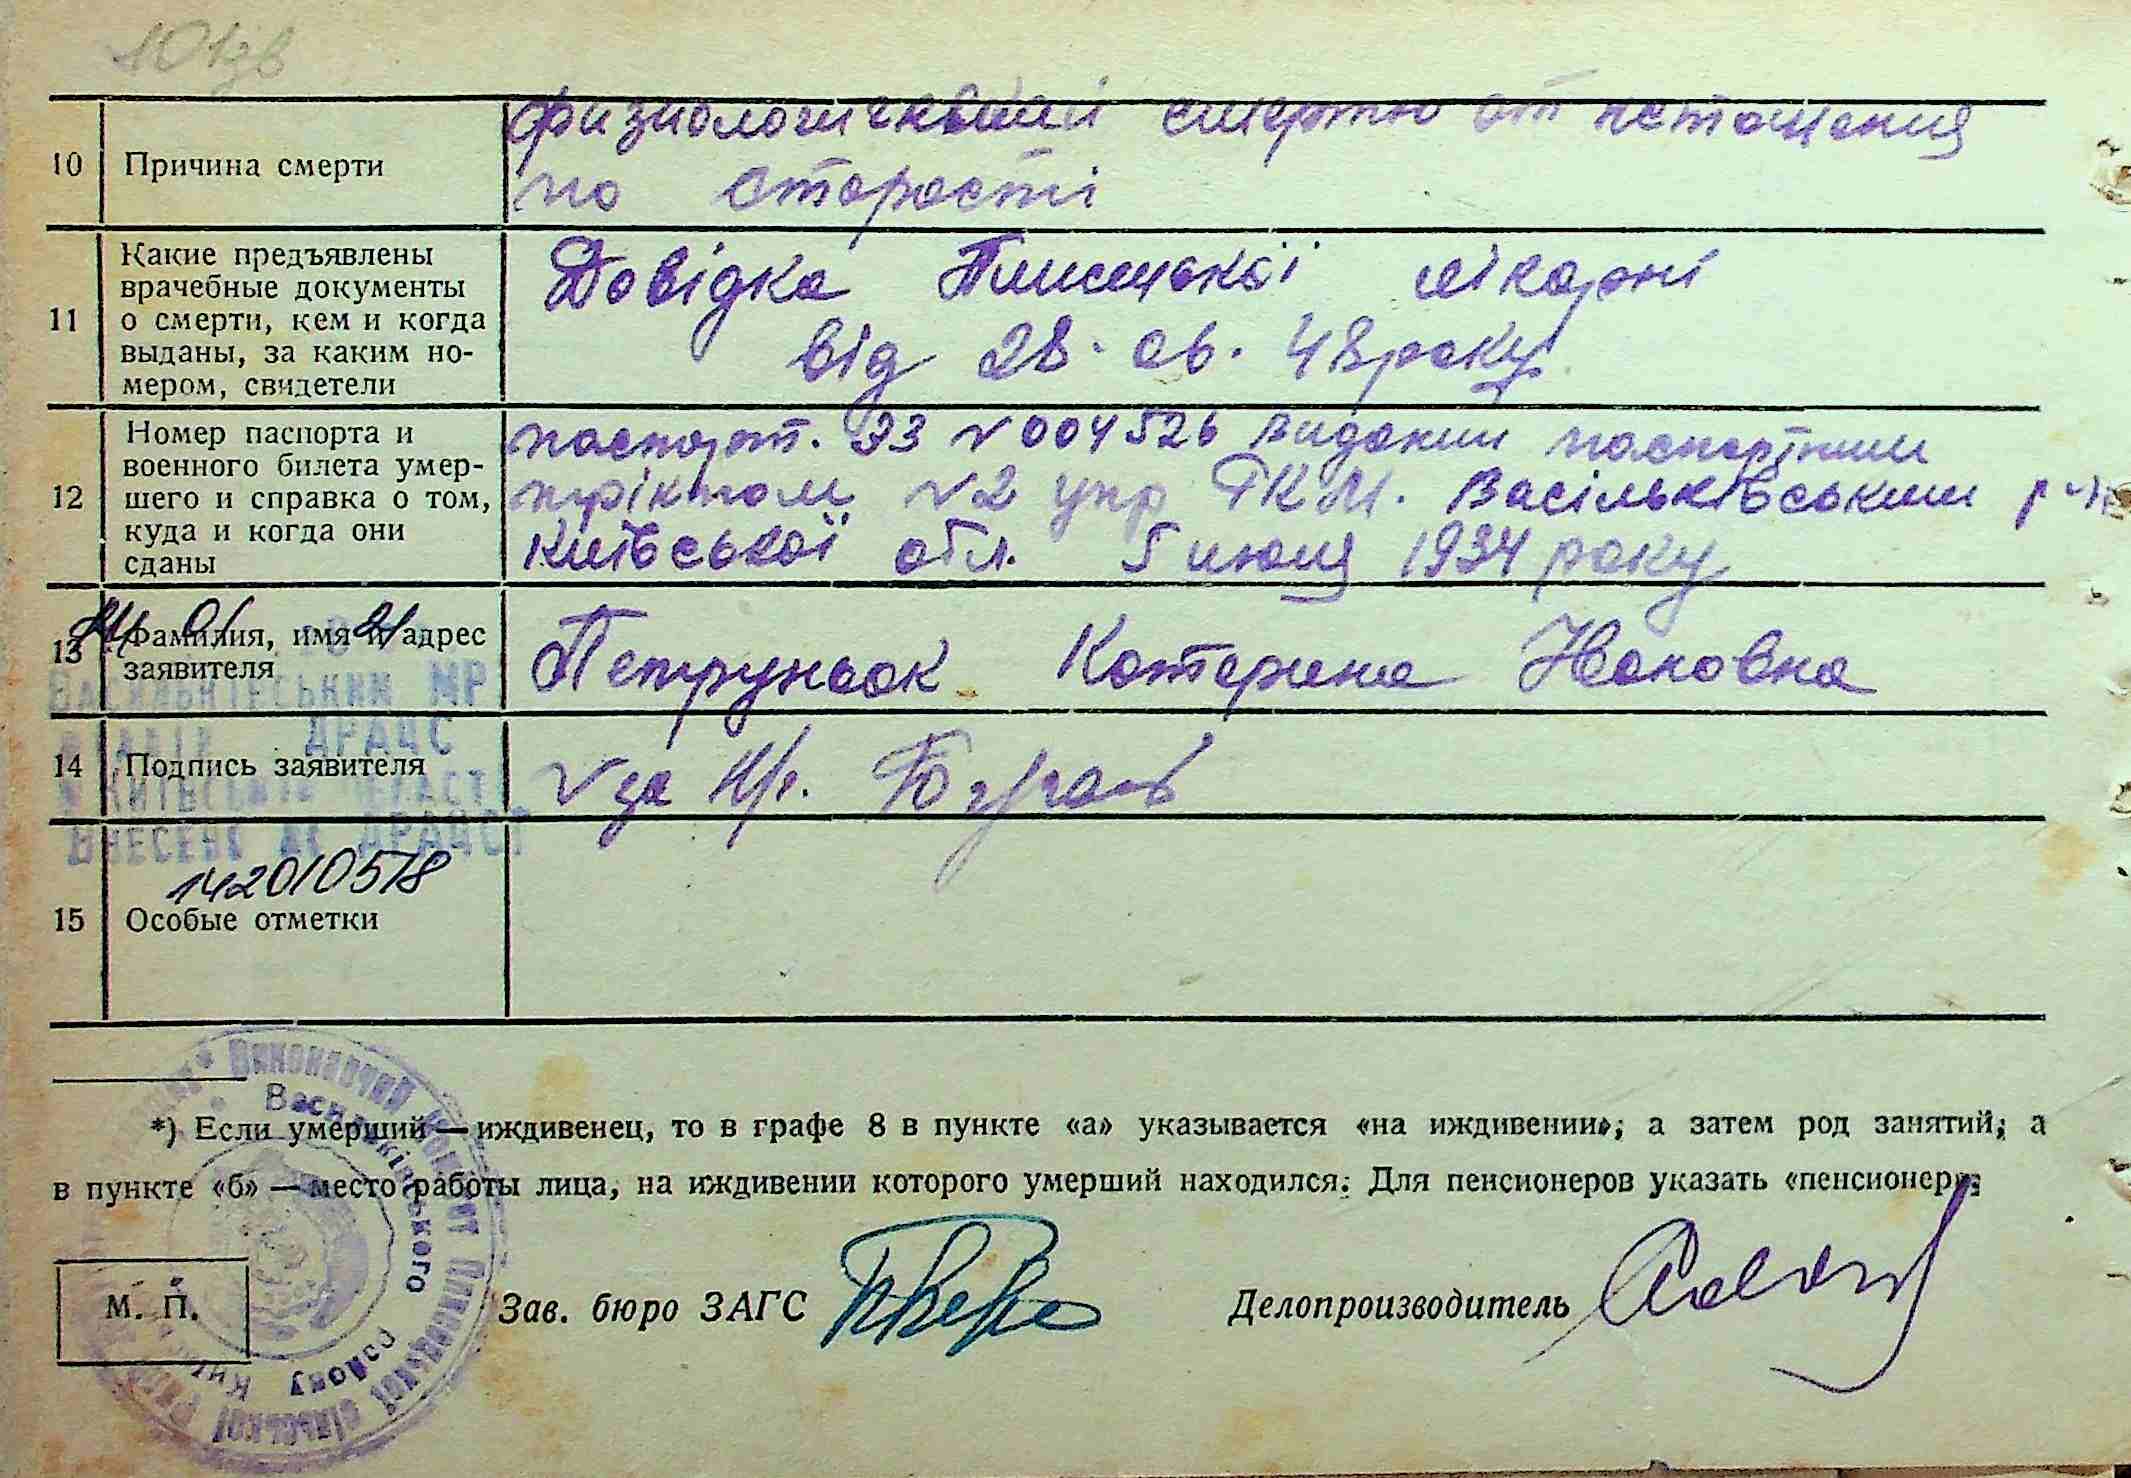 101зв
10 Причина смерти
физиологический смертю от истощения
по старості
11 Какие предъявлены
врачебные документы
о смерти, кем и когда
выданы, за каким но-
мером, свидетели
Довідка Плисецкої лікарні
від 28. 06. 48 року
12 Номер паспорта и
военного билета умер-
шего и справка о том,
куда и когда они
сданы
паспорт. ЭЗ №004526 виданий паспортним
пунктом №2 упр РКМ. Васільківським р-н
Київської обл. 5 июля 1934 року
13 Фамилия, имя и адрес
заявителя
Петруньок Катерина Ивановна
ВАСИЛЬКІВСЬКИЙ МР
ВІДДІЛ ДРАЦС
14 Подпись заявителя
за н/г.
ВНЕСЕНО ДО ДРАЦСГ
142010578
15 Особые отметки
*) Если умерший — иждивенец, то в графе 8 в пункте «а» указывается «на иждивении»; а затем род занятий; а
в пункте «б» — место работы лица, на иждивении которого умерший находился. Для пенсионеров указать «пенсионер»
М. П.
Зав. бюро ЗАГС
Делопроизводитель
Виконавчий комітет Плисецької сільської Ради
Васильківського району